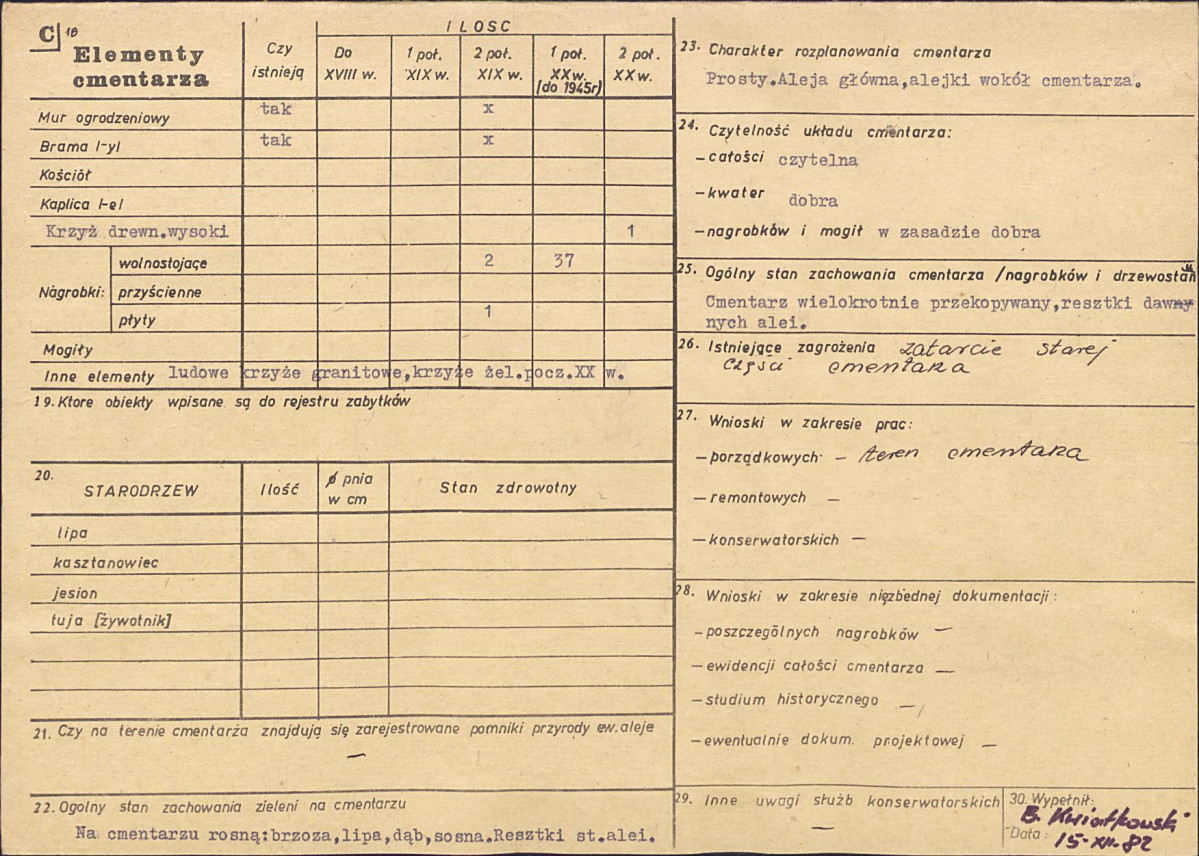 C 18
Elementy
cmentarza
Czy
istnieją
ILOSC
Do
XVIII w.
1 poł.
XIX w.
2 poł.
XIX w.
1 poł.
XX w.
(do 1945r)
2 poł.
XX w.
Mur ogrodzeniowy tak x
Brama /-y/ tak x
Kościół
Kaplica /-e/
Krzyż drewn.wysoki 1
Nagrobki:
wolnostojące 2 37
przyścienne
płyty 1
Mogiły
Inne elementy ludowe krzyże granitowe,krzyże żel.pocz.XX w.
19. Ktore obiekty wpisane są do rejestru zabytków
20.
STARODRZEW
Ilość
ø pnia
w cm
Stan zdrowotny
lipa
kasztanowiec
jesion
tuja [żywotnik]
21. Czy na terenie cmentarza znajdują się zarejestrowane pomniki przyrody ew. aleje
—
22. Ogolny stan zachowania zieleni na cmentarzu
Na cmentarzu rosną:brzoza,lipa,dąb,sosna.Resztki st.alei.
23. Charakter rozplanowania cmentarza
Prosty.Aleja główna,alejki wokół cmentarza.
24. Czytelność układu cmentarza:
—całości czytelna
—kwater dobra
—nagrobków i mogił w zasadzie dobra
25. Ogólny stan zachowania cmentarza /nagrobków i drzewostan
Cmentarz wielokrotnie przekopywany,resztki dawny
nych alei.
26. Istniejące zagrożenia zatarcie starej
części cmentarza
27. Wnioski w zakresie prac:
—porządkowych — teren cmentarza
—remontowych —
—konserwatorskich —
28. Wnioski w zakresie nięzbednej dokumentacji:
—poszczególnych nagrobków —
—ewidencji całości cmentarza —
—studium historycznego —
—ewentualnie dokum. projektowej —
29. Inne uwagi służb konserwatorskich
—
30. Wypełnił:
B. Kwiatkowski
Data: 15-XII-82